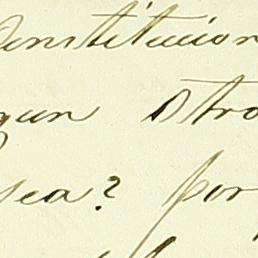 Constitucion
gun otro
sea? por